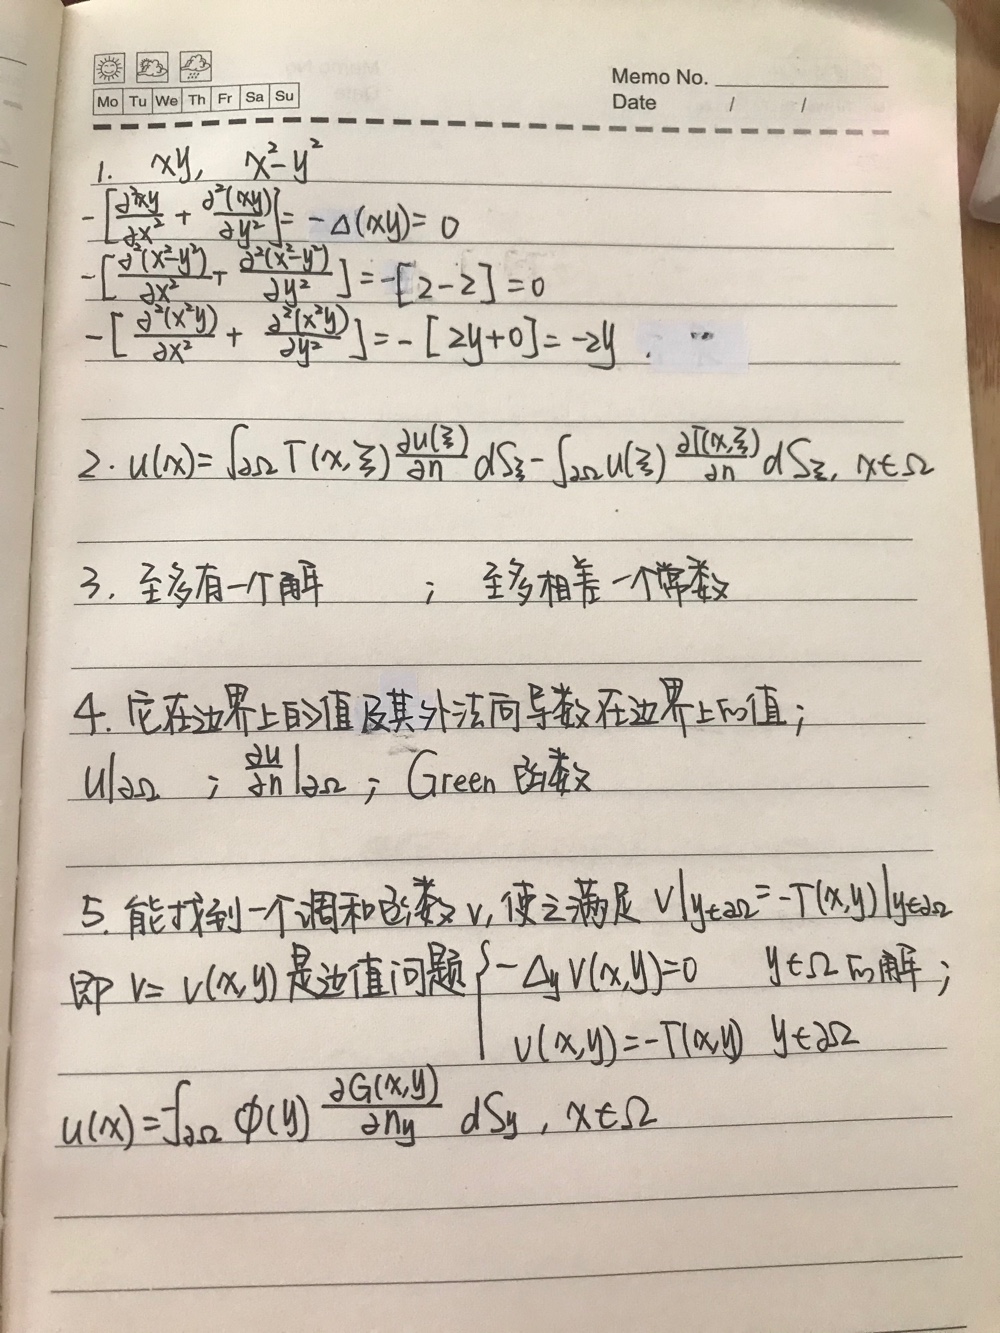 Mo Tu We Th Fr Sa Su
Memo No.
Date / /
1. xy, x²-y²
-[∂²xy/∂x² + ∂²(xy)/∂y²] = -Δ(xy) = 0
-[∂²(x²-y²)/∂x² + ∂²(x²-y²)/∂y²] = -[2-2] = 0
-[∂²(x²y)/∂x² + ∂²(x²y)/∂y²] = -[2y+0] = -2y.
2. u(x) = ∫∂Ω T(x,ξ) ∂u(ξ)/∂n dSξ - ∫∂Ω u(ξ) ∂T(x,ξ)/∂n dSξ, x∈Ω
3. 至多有一个解 ; 至多相差一个常数
4. 它在边界上的值及其外法向导数在边界上的值;
u|∂Ω ; ∂u/∂n|∂Ω ; Green 函数
5. 能找到一个调和函数v,使之满足 V|y∈∂Ω = -T(x,y)|y∈∂Ω
即 v = v(x,y) 是边值问题 { -Δy v(x,y)=0 y∈Ω 的解;
v(x,y) = -T(x,y) y∈∂Ω
u(x) = -∫∂Ω φ(y) ∂G(x,y)/∂ny dSy, x∈Ω